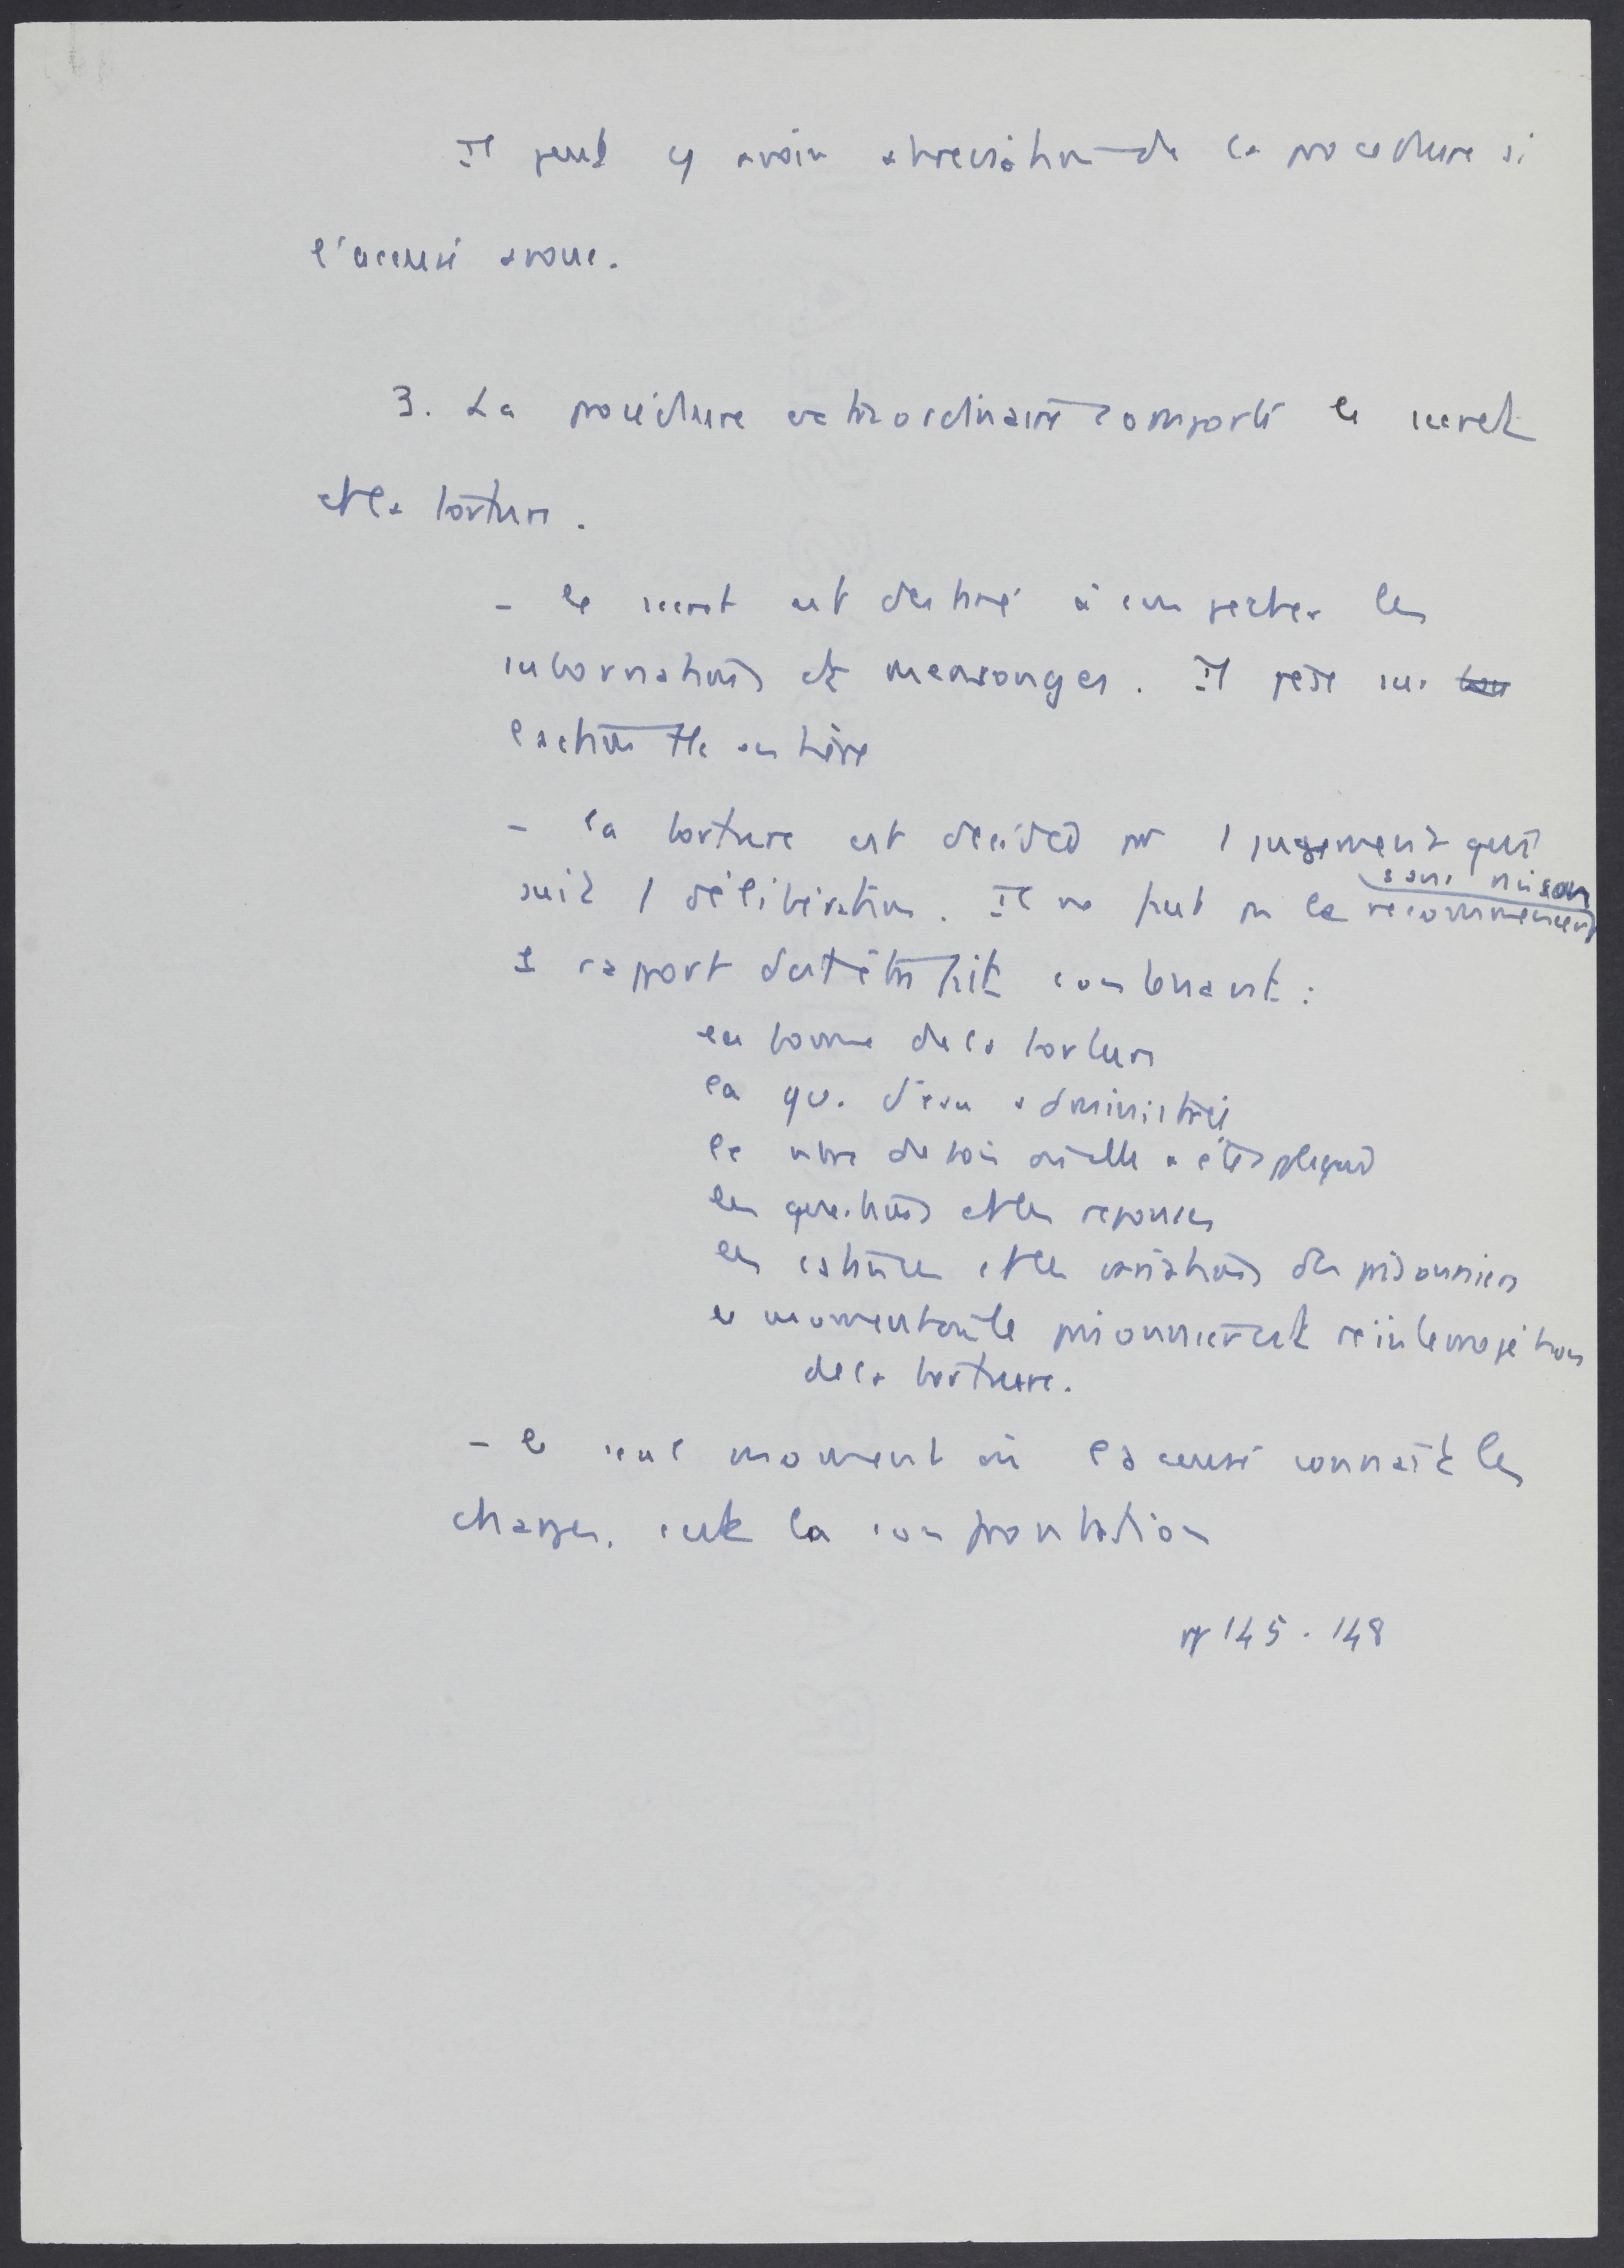 Il peut y avoir abréviation de la procédure si
l'accusé avoue.
3. La procédure extraordinaire comporte le secret
et la torture.
- le secret est destiné à empêcher les
subornations et mensonges. Il pèse sur
l'action tte entière
- la torture est décidée par 1 jugement qui
suit 1 délibération. Il ne faut pas la recommencer sans raison
1 rapport doit être fait contenant :
la forme de la torture
la qu. d'eau administrée
le nbre de fois où elle a été appliquée
les questions et les réponses
les et les variations du prisonnier
le moment où le prisonnier est réinterrogé hors
de la torture.
- le seul moment où l'accusé connaît les
charges, c'est la confrontation
pp 145-148